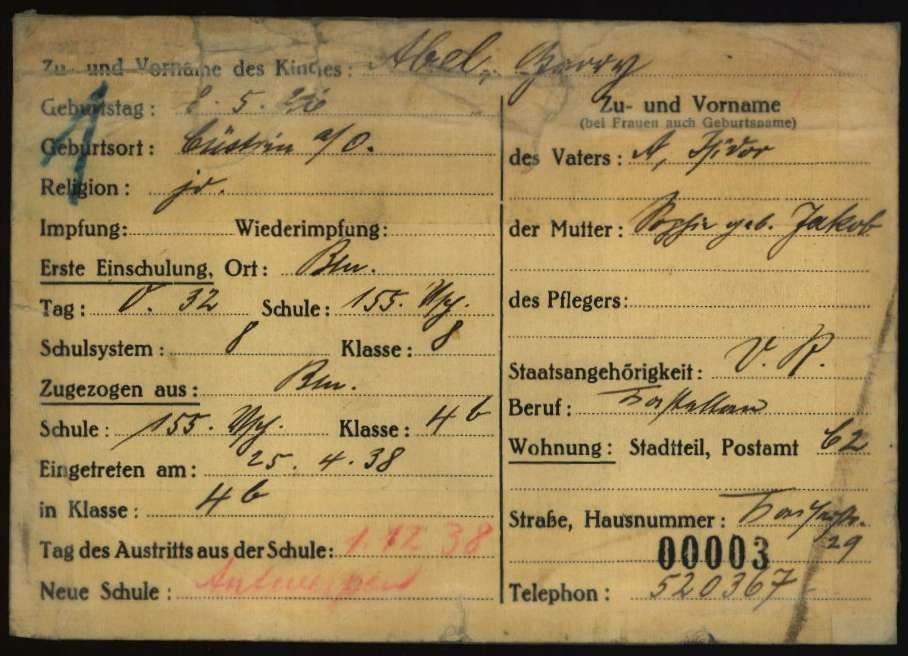 Zu- und Vorname des Kindes: Abel, Harry
Geburtstag: 2. 5. 26
Geburtsort: Cüstrin a/O.
Religion: jd.
Impfung: Wiederimpfung:
Erste Einschulung, Ort: Bln.
Tag: O. 32 Schule: 155. Vsch.
Schulsystem: 8 Klasse: 8
Zugezogen aus: Bln.
Schule: 155. Vsch. Klasse: 4b
Eingetreten am: 25. 4. 38
in Klasse: 4b
Tag des Austritts aus der Schule: 1. 12 38
Neue Schule: Antwerpen
Zu- und Vorname
(bei Frauen auch Geburtsname)
des Vaters: A, Isidor
der Mutter: Sophie geb. Jakob
des Pflegers:
Staatsangehörigkeit: D. R.
Beruf: Kastellan
Wohnung: Stadtteil, Postamt C2
Straße, Hausnummer:
29
00003
Telephon: 520367